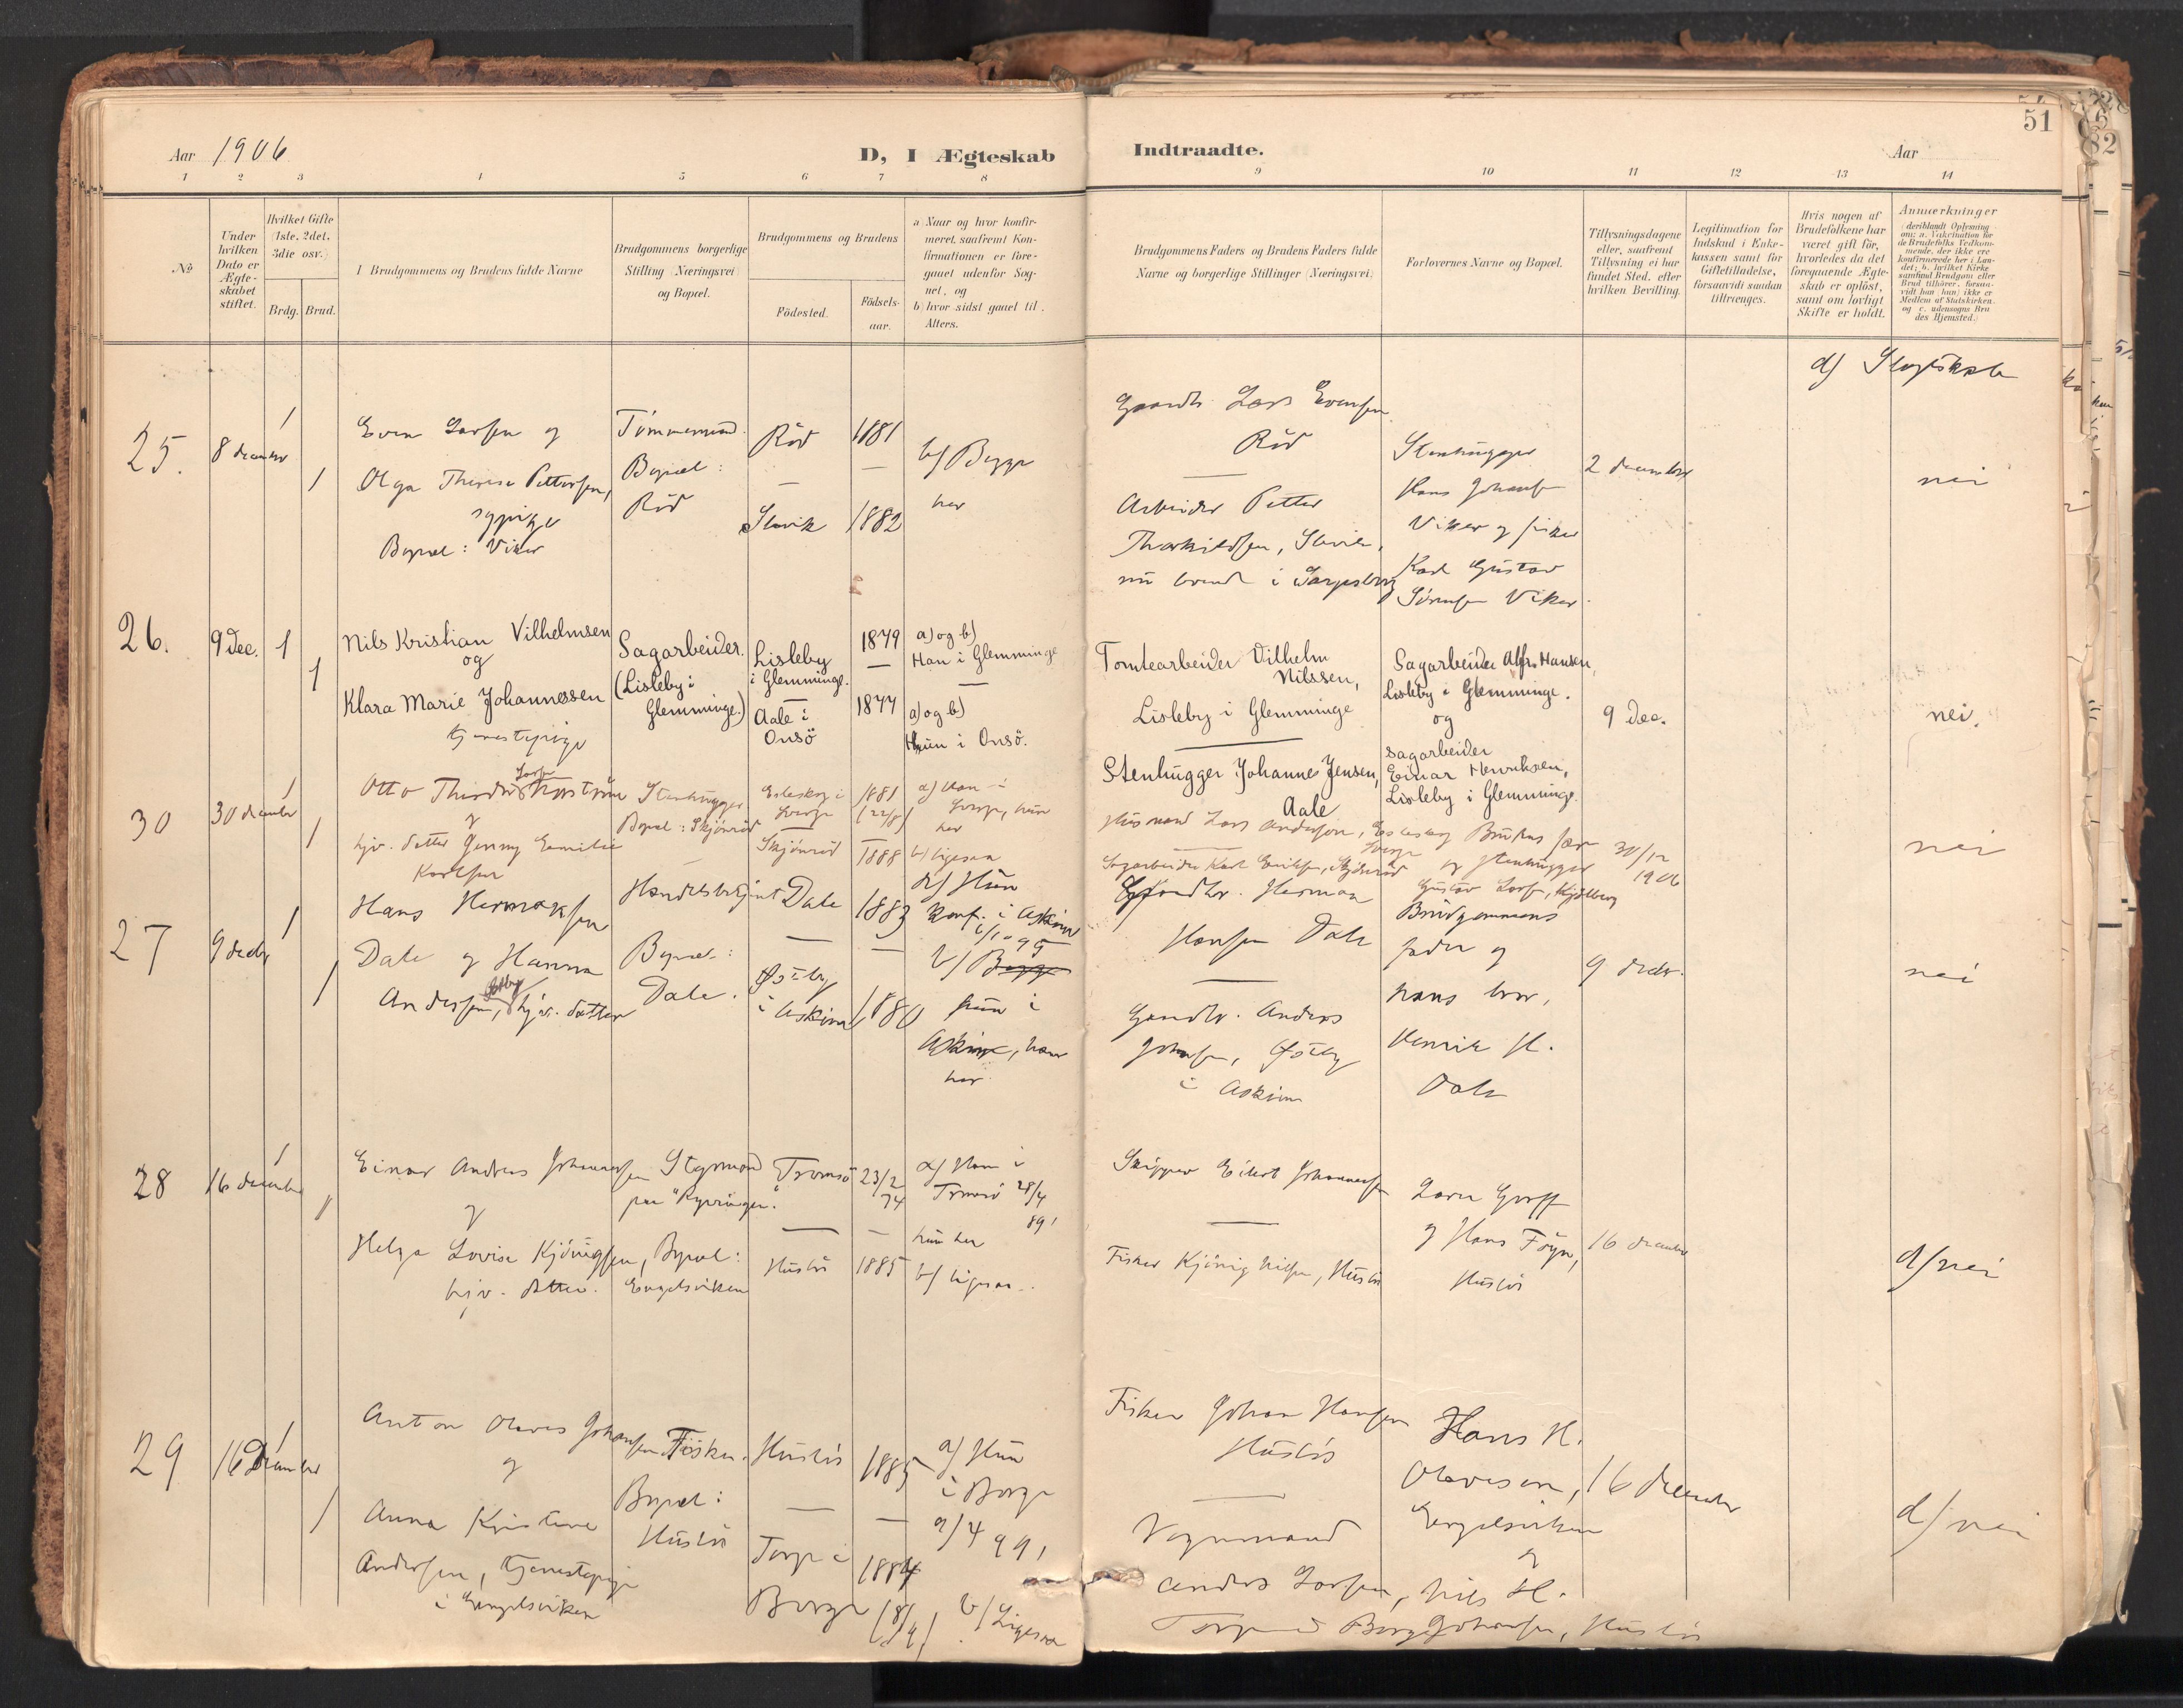 51
82
Aar 1906
D, I Ægteskab
Indtraadte.
Aar
1 2 3 4 5 6 7 8 9 10 11 12 13 14
No
Under hvilken Dato er Ægteskabet stiftet.
Hvilket Gifte (1ste, 2det, 3die osv.)
Brdg. Brud.
I Brudgommens og Brudens fulde Navne
Brudgommens borgerlige Stilling (Næringsvei) og Bopæl.
Brudgommens og Brudens
Födested.
Födselsaar.
a) Naar og hvor konfirmeret, saafremt Konfirmationen er foregaaet udenfor Sognet, og
b) hvor sidst gaaet til Alters.
Brudgommens Faders og Brudens Faders fulde Navne og borgerlige Stillinger (Næringsvei)
Forlovernes Navne og Bopæl.
Tillysningsdagene eller, saafremt Tillysning ei har fundet Sted, efter hvilken Bevilling.
Legitimation for Indskud i Enkekassen samt for Giftetilladelse, forsaavidt saadan tiltrænges.
Hvis nogen af Brudefolkene har været gift för, hvorledes da det foregaaende Ægteskab er oplöst, samt om lovligt Skifte er holdt.
Anmærkninger
(deriblandt Oplysning om: a. Vakcination for de Brudefolks Vedkommende, der ikke ere konfirmerede her i Landet; b. hvilket Kirkesamfund Brudgom eller Brud tilhörer, forsaavidt han (hun) ikke er Medlem af Statskirken, og c. udensogns Brudes Hjemsted.)
d) Slegtskab
25.
8 december
1
1
Even Larsen og
Olga Therese Pettersen,
sypige
Bopæl: Viker
Tömmermand.
Bopæl:
Röd
Röd
—
Slevik
1881
—
1882
b) Begge
her
Gaardb. Lars Evensen
Röd
Arbeider Petter
Thorkildsen, Slevik,
nu boende i Sarpsborg
Stenhugger
Hans Johansen
Viker og fisker
Karl Gustav
Sörensen Viker.
2 december
nei
26.
9 Dec.
1
1
Nils Kristian Vilhelmsen
og
Klara Marie Johannessen
tjenestepige
Sagarbeider.
(Lisleby i
Glemminge.)
Lisleby
i Glemminge.
Aale i
Onsö
1879
—
1877
a) og b)
Han i Glemminge
—
a) og b)
Hun i Onsö.
Tomtearbeider Vilhelm
Nilssen,
Lisleby i Glemminge
Stenhugger Johannes Jensen,
Aale
Sagarbeider Alfr. Hansen,
Lisleby i Glemminge.
og
sagarbeider
Einar Henriksen,
Lisleby i Glemminge.
9 Dec.
nei.
30
30 december
1
1
Otto Theodor
og
hjv. datter Jenny Emilie
Karlsen
Stenhugger
Bopæl: Skjönröd
Sverige
Skjönröd
1881
(22/8)
1888
a) Han i
Sverge, hun
her
b) ligesaa
Husmand Lars Andersson,
Sverge
Sagarbeider Karl Eriksen, Skjönröd
Brudens far
og stenhugger
Gustav Larsen, Kjölberg
30/12
1906
nei
27
9 decbr
1
1
Hans Hermansen
Dale og Hanna
Andersen, hjv. datter
Handelsbetjent
Bopæl:
Dale.
Dale
—
i Askim
1883
—
1880
a) Hun
konf. i Askim
6/10 95
b) Begge
hun i
Askim, han
her
Gaardbr. Herman
Hansen Dale
Gaardbr. Anders
Johansen,
i Askim
Brudgommens
fader og
hans bror,
Henrik H.
Dale
9 decbr.
nei
28
16 december
1
1
Einar Andreas Johannessen
og
Helga Lovise Kjönigsen,
hjv. datter.
Styrmand
paa "Kyvringen".
Bopæl:
Engelsviken
Tromsö
—
Huslös
23/2
74
—
1885
a) Han i
Tromsö 28/4
89,
hun her
b) ligesaa.
Skipper Eilert Johannessen
Fisker Kjönig Nilsen, Huslös
Lars Graff
og Hans Föyn,
Huslös
16 december
d) nei
29
16 december
1
1
Anton Olaves Johansen
og
Anna Kristine
Andersen, tjenestepige
i Engelsviken
Fisker.
Bopæl:
Huslös
Huslös
—
Torp i
Borge
1885
—
1884
(8/4)
a) Hun
i Borge
9/4 99,
b) Ligesaa
Fisker Johan Hansen
Huslös
Vognmand
Anders Larsen,
Torp i Borge
Hans H.
Olavesen,
Engelsviken
og
Nils H.
Johansen, Huslös
16 december
d) nei